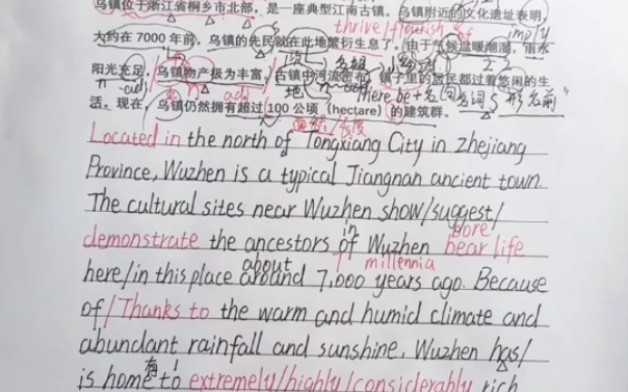 乌镇位于浙江省桐乡市北部,是一座典型江南古镇。乌镇附近的文化遗址表明,
thrive/flourish imply
大约在 7000 年前,乌镇的先民就在此地繁衍生息了。由于气候温暖潮湿,雨水
阳光充足,乌镇物产极为丰富,古镇中河流密布,镇子里的居民都过着悠闲的生
n-adj n adj there be+名词
活。现在,乌镇仍然拥有超过 100 公顷(hectare)的建筑群。
Located in the north of Tongxiang City in Zhejiang
Province, Wuzhen is a typical Jiangnan ancient town.
The cultural sites near Wuzhen show/suggest/
in bore
demonstrate the ancestors of Wuzhen bear life
about millennia
here/in this place around 7,000 years ago. Because
of/Thanks to the warm and humid climate and
abundant rainfall and sunshine, Wuzhen has/
有
is home to extremely/highly/considerably rich